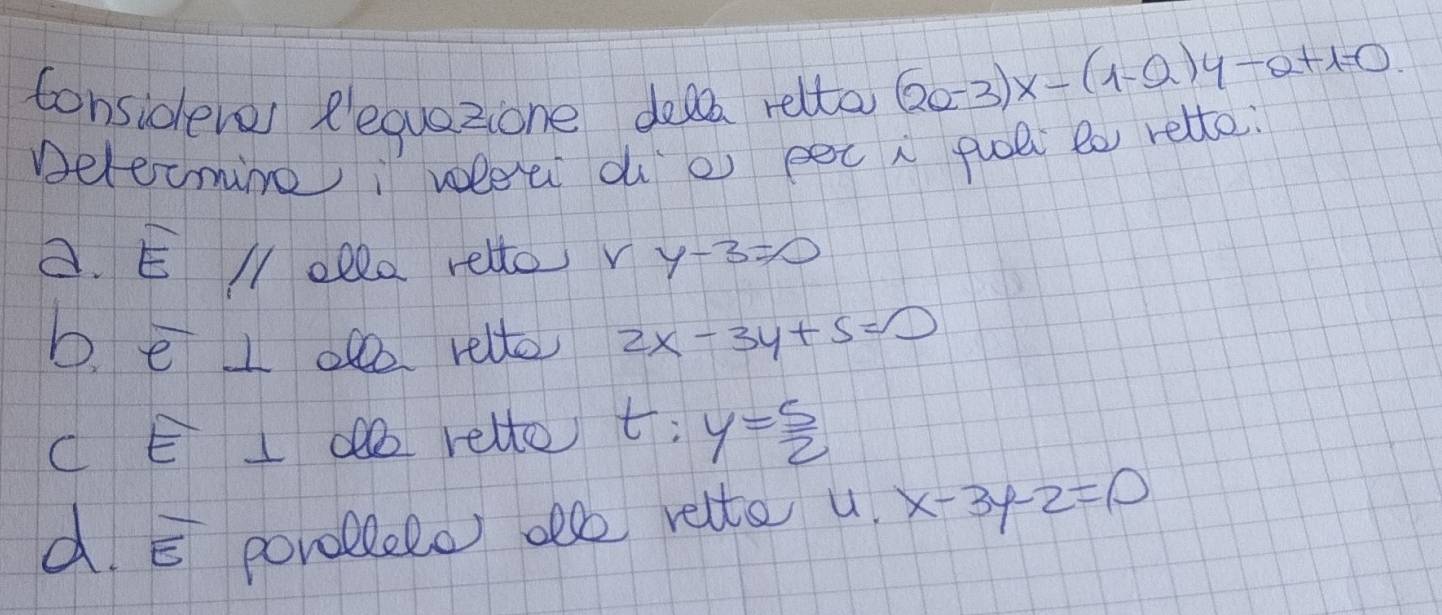 Considera l'equazione della retta (2a-3)x-(1-a)y-a+1=0.
Determina i valori di a per i quali la retta:
a. È // alla retta r y-3=0
b. è ⊥ alla retta 2x-3y+5=0
c È ⊥ alla retta t: y=5/2
d. È parallela alla retta u. x-3y-2=0